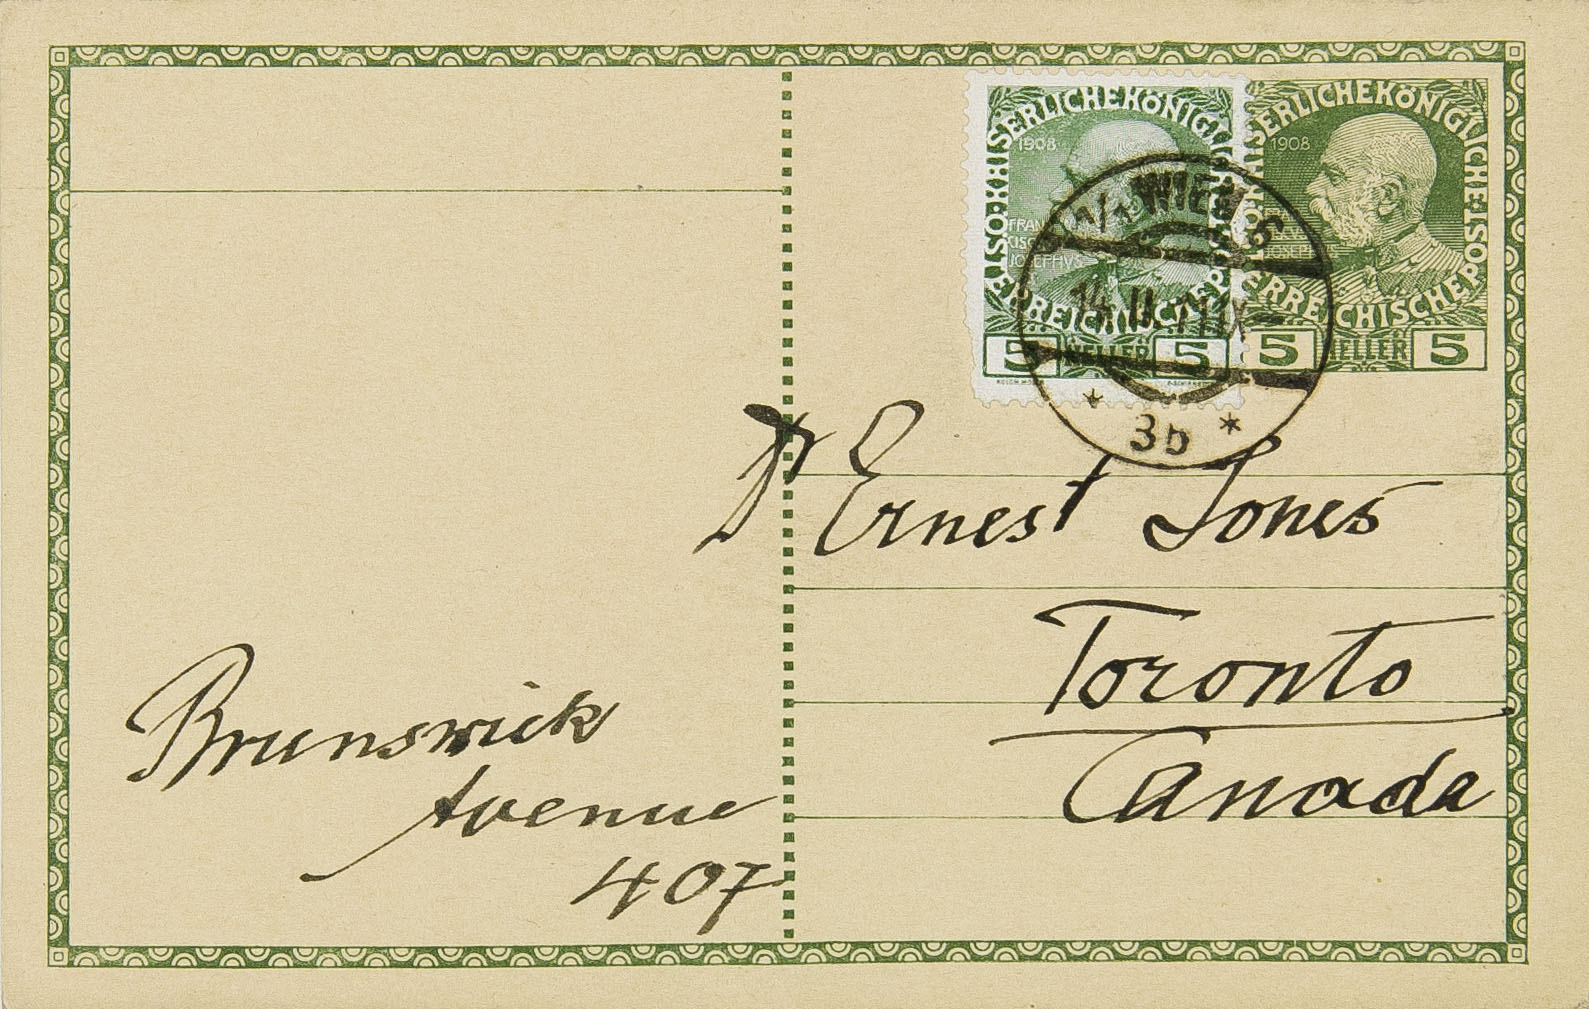 KAISERLICHE KÖNIGLICHE ÖSTERREICHISCHE POST
1908
FRAN
CISC
JOSEPHVS
5 HELLER 5
KAISERLICHE KÖNIGLICHE ÖSTERREICHISCHE POST
1908
JOSEPHVS
5 HELLER 5
1/1 WIEN
14. II.
* 3b *
Dr Ernest Jones
Toronto
Canada
Brunswick
Avenue
407